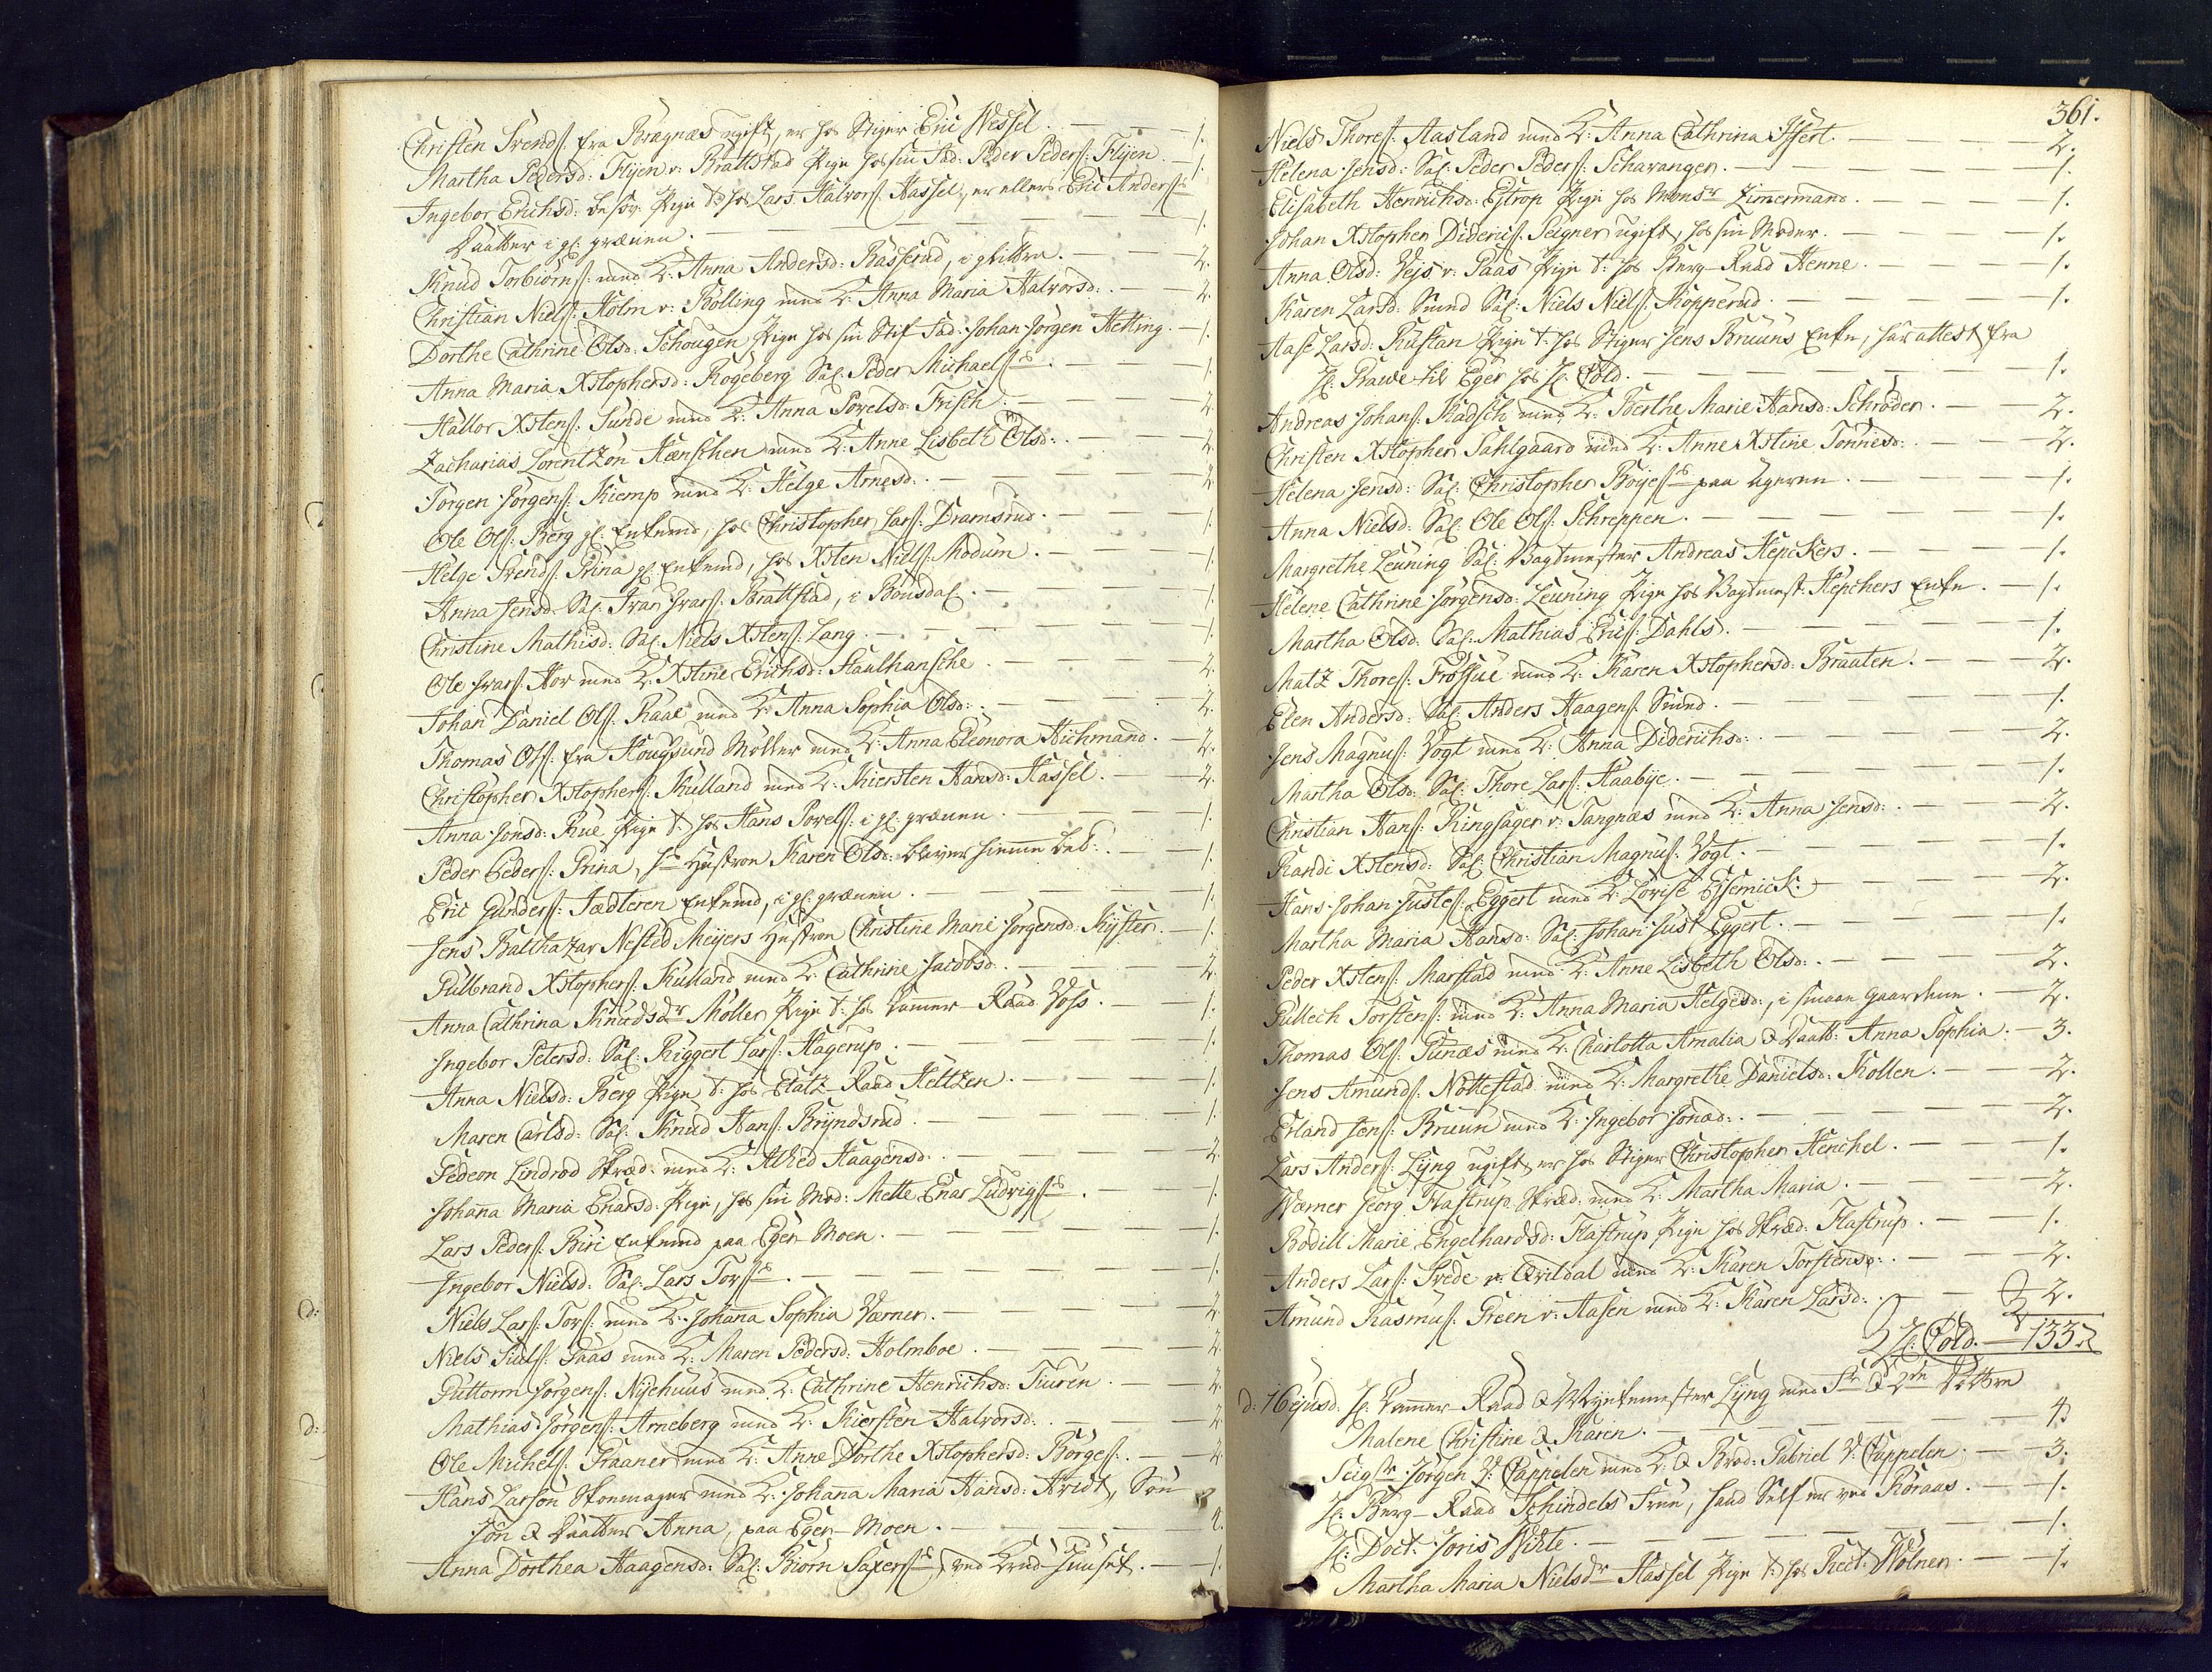 Christen Svends: fra Bragnæs ugift, er hos Stiger Eric Wessel. — 1.
Martha Pedersd: Flijen v: Brattstad Pige hos sin Fad: Peder Peders: Flijen. — 1.
Ingebor Erichsd: Pige t: hos Lars Halvors: Hassel, er ellers Eric Anders:
Daatter i gl: grænen. — 1.
Knud Torbiørns: med K: Anna Andersd: Rasserud, i — 2.
Christian Niels: Holm v: Bølling med K: Anna Maria Halvorsd: — 2.
Dorthe Cathrine Olsd: Schougen Pige hos sin Stif Fad: Johan Jørgen Hetting. — 1.
Anna Maria Xstophersd: Rogeberg Sal: Peder Michaels: — 1.
Hallor Xstens: Sunde med K: Anna Povelsd: Frisch. — 2.
Zacharias Lorentzon Hænschen med K: Anne Lisbeth Olsd: — 2.
Jørgen Jørgens: Kiemp med K: Helge Arnesd: — 2.
Ole Ols: Berg gl: Enkemd, hos Christopher Lars: Dramsrud. — 1.
Helge Svends: Prina gl: Enkemd, hos Xsten Niels: Modum. — 1.
Anna Jensd: Sal: Ivar Ivars: Brattstad, i Bousdal. — 1.
Christine Mathisd: Sal: Niels Xstens: Lang. — 1.
Ole Ivars: Hov med K: Xstine Erichsd: Staulhansche. — 2.
Johan Daniel Ols: Raae med K: Anna Sophia Olsd: — 2.
Thomas Ols: fra Hougsund Møller med K: Anna Eleonora Hichmand. — 2.
Christopher Xstophers: Kulland med K: Kiersten Hansd: Hassel. — 2.
Anna Jonsd: Rue Pige t: hos Hans Povels: i gl: grænen. — 1.
Peder Peders: Prina, Hustroe Karen Olsd: hiemme — 1.
Eric Gunders: Tædteren Enkemd, i gl: grænen. — 1.
Jens Balthazar Nested Meijers Hustroe Christine Marie Jørgensd: Kijster. — 1.
Gulbrand Xstophers: Kulland med K: Cathrine Jacobsd: — 2.
Anna Cathrina Knudsdr Møller Pige t: hos Camer-Raad Voss. — 1.
Ingebor Petersd: Sal: Riggert Lars: Hagerup. — 1.
Anna Nielsd: Berg Pige t: hos Etatz-Raad Heltzen. — 1.
Maren Carlsd: Sal: Knud Hans: Bryndsrud. — 1.
Gedeon Lindrod Skræd: med K: Alhed Haagensd: — 2.
Johanna Maria Enarsd: Pige, hos sin Mod: Mette Enar Ludvigs: — 1.
Lars Peders: Biri Enkemd paa Eger-Moen. — 1.
Ingebor Nielsd: Sal: Lars Tors: — 1.
Niels Lars: Tors: med K: Johanna Sophia Værner. — 2.
Niels Siuls: Paas med K: Maren Pedersd: Holmboe. — 2.
Guttorm Jørgens: Nyehuus med K: Cathrine Henrichsd: Tiuren. — 2.
Mathias Jørgens: Arneberg med K: Kiersten Halvorsd: — 2.
Ole Michels: Graaner med K: Anne Dorthe Xstophersd: Børges: — 2.
Hans Larson Skoemager med K: Johanna Maria Hansd: Hvidt, Søn
Jon & Daatter Anna, paa Eger-Moen. — 4.
Anna Dorthea Haagensd: Sal: Biørn Saxers:, ved Krud-huuset. — 1.
361.
Niels Thores: Aasland med K: Anna Cathrina Ifsert. — 2.
Helena Jensd: Sal: Peder Peders: Schavanger. — 1.
Elisabeth Henrichsd: Estrop Pige hos Monsr Zimermand. — 1.
Johan Xstopher Dideric: Seigner ugift, hos sin Moder. — 1.
Anna Olsd: Vejs v: Paas Pige t: hos Berg-Raad Henne. — 1.
Karen Larsd: Smed Sal: Niels Niels: Kopperud. — 1.
Aase Larsd: Rustan Pige t: hos Stiger Jens Bruuns Enke, har attest fra
Hr: Rawe til Eger hos Hr: Cold. — 1.
Andreas Johans: Kadsch med K: Berthe Marie Hansd: Schrøder. — 2.
Christen Xstopher Sahlgaard med K: Anne Xstine Tønnesd: — 2.
Helena Jensd: Sal: Christopher Bøyes: paa Ageren. — 1.
Anna Nielsd: Sal: Ole Ols: Schreppen. — 1.
Margrethe Leuning Sal: Vagtmester Andreas Hepckers. — 1.
Helene Cathrine Jørgensd: Leuning Pige hos Vagtmest: Hepchers Enke. — 1.
Martha Olsd: Sal: Mathias Erics: Dahls. — 1.
Matz Thores: Frøssue med K: Karen Xstophersd: Braaten. — 2.
Elen Andersd: Sal: Anders Haagens: Smed. — 1.
Jens Magnus: Vogt med K: Anna Diderichsd: — 2.
Martha Olsd: Sal: Thore Lars: Kaabye. — 1.
Christian Hans: Ringsager v: Tangnæs med K: Anna Jensd: — 2.
Randi Xstensd: Sal: Christian Magnus: Vogt. — 1.
Hans Johan Justes: Eggert med K: Lovise — 2.
Martha Maria Hansd: Sal: Johan Just Eggert. — 1.
Peder Xstens: Marstad med K: Anne Lisbeth Olsd: — 2.
Gullech Torstens: med K: Anna Maria Helgesd:, i smaae Gaardene. — 2.
Thomas Ols: Punæs med K: Charlotta Amalia & Daatt: Anna Sophia. — 3.
Jens Amunds: Nottestad med K: Margrethe Danielsd: Kollen. — 2.
Erland Jens: Bruun med K: Ingebor Jonæd: — 2.
Lars Anders: Lyng ugift er hos Stiger Christopher Henchel. — 1.
Wærner Georg Flastrup Skræd: med K: Martha Maria. — 2.
Bodill Marie Engelhardsd: Flastrup Pige hos Skræd: Flastrup. — 1.
Anders Lars: Svede v: Qvildal med K: Karen Torstensd: — 2.
Amund Rasmus: Green v: Aasen med K: Karen Larsd: — 2.
Hr: Cold. — 133
d: 16 ejusd: Hr: Camer-Raad & Myntemester Lyng med Fr: & 2de Døttre
Malene Christine & Karen. — 4.
Seigr Jørgen V: Cappelen med K: & Brod: Gabriel V: Cappelen. — 3.
Hr: Berg-Raad Schindels Frue, hand Self er ved Røraas. — 1.
Hr: Doct: Joris Wikte. — 1.
Martha Maria Nielsdr Hassel Pige t: hos Rect: Wolner. — 1.